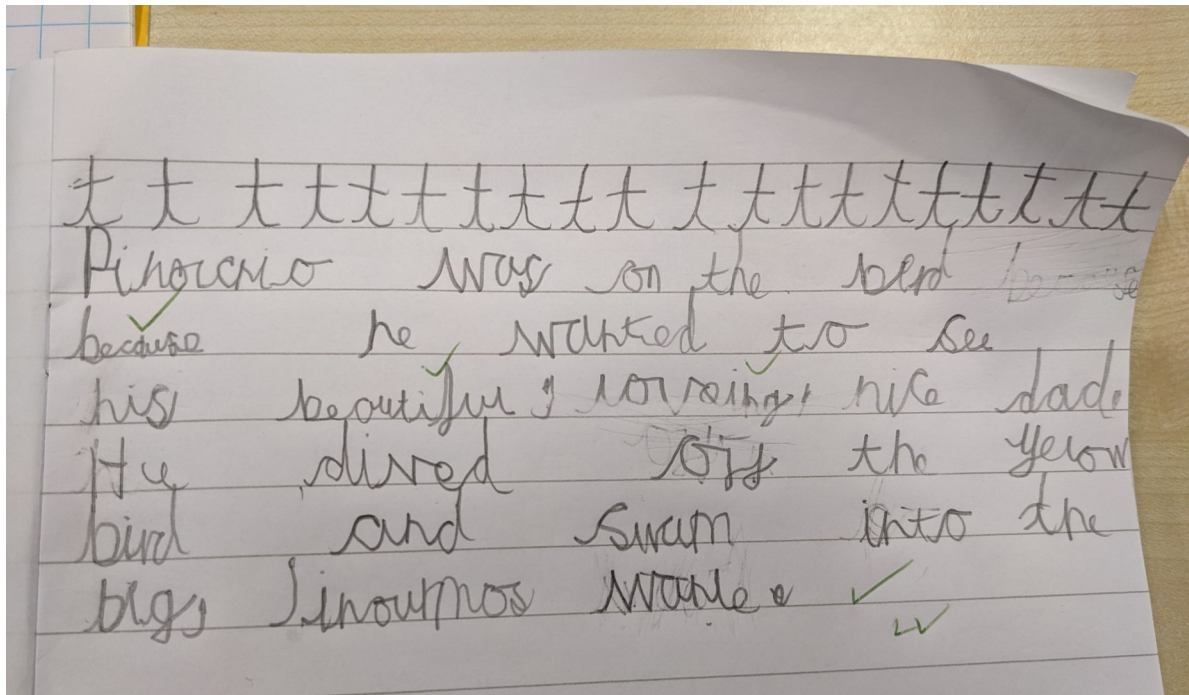 t t t t t t t t t t t t t t t t t t t t
Pinorcrio was on the berd because
because he wanted to see
his beautiful, lorveing, nice dad.
He dived off the yelow
bird and swam into the
big, jinourmos wale.